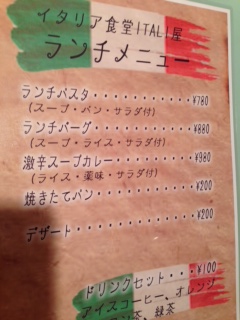 イタリア食堂ITALI屋
ランチメニュー
ランチパスタ・・・・・・・・・・・¥780
(スープ・パン・サラダ付)
ランチバーグ・・・・・・・・・・・¥880
(スープ・ライス・サラダ付)
激辛スープカレー・・・・・・・・¥980
(ライス・薬味・サラダ付)
焼きたてパン・・・・・・・・・・・¥200
デザート・・・・・・・・・・・・・¥200
ドリンクセット・・・・¥100
アイスコーヒー、オレンジ
茶、緑茶